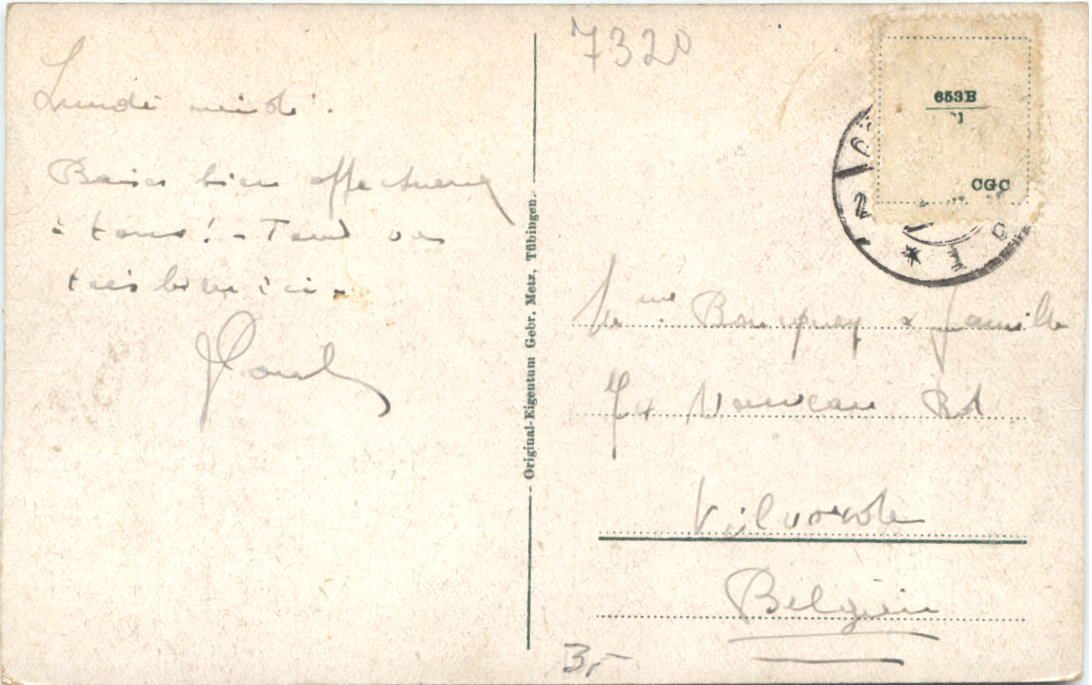 Lundi midi.
Baisers bien affectueux
à tous! - Tout va
très bien ici -
7320
653B
CGC
Original-Eigentum Gebr. Metz, Tübingen.
Mme & famille
Nouveau
Vilvorde
Belgien
3,-